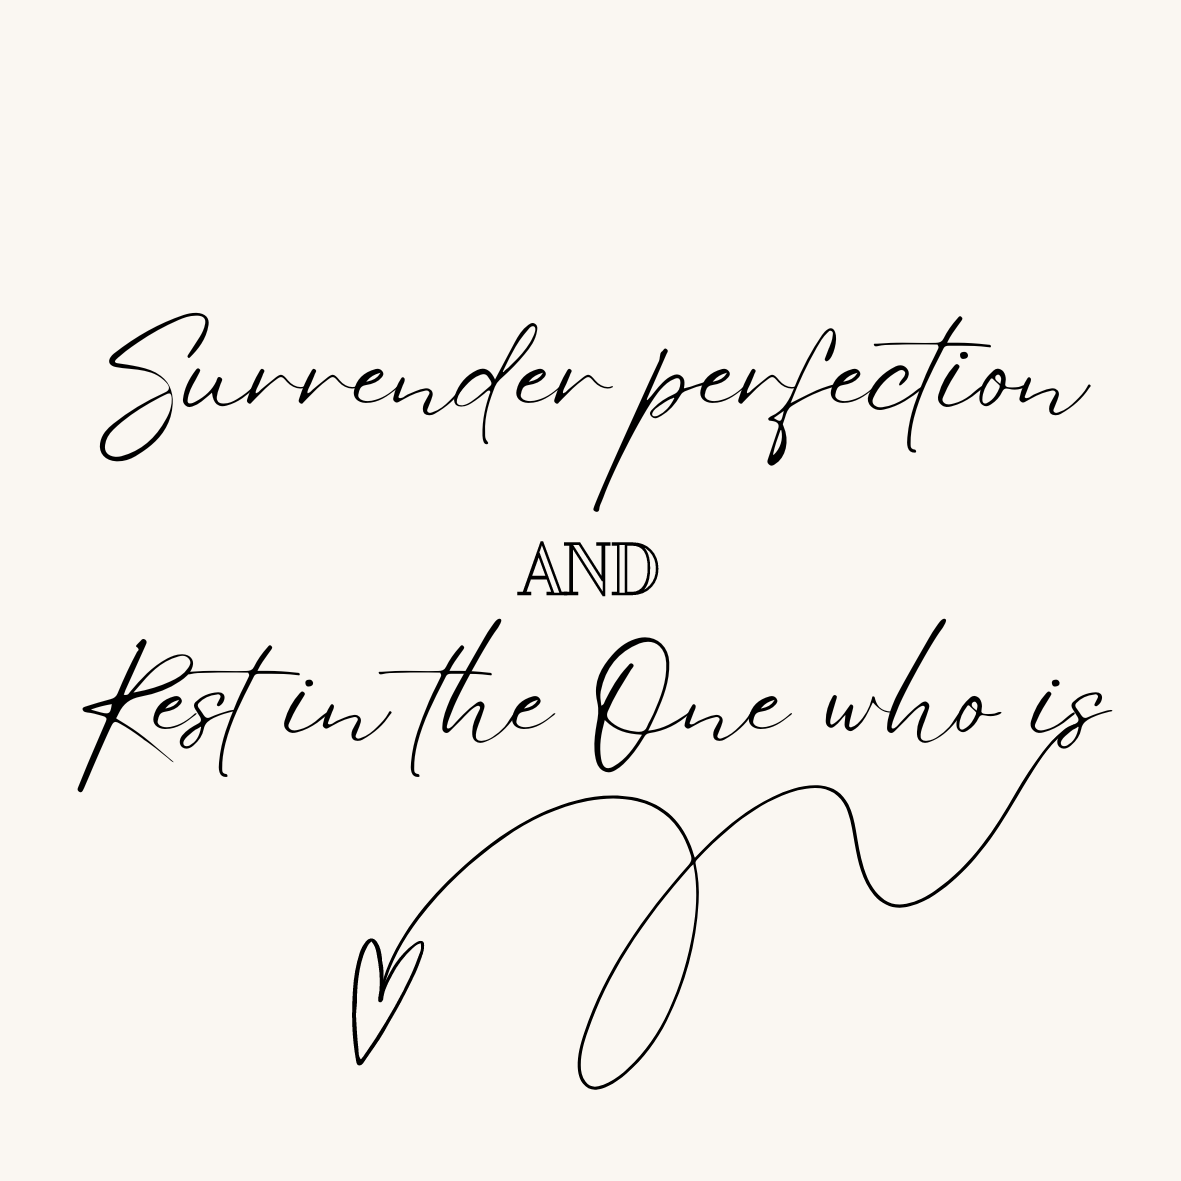 Surrender perfection
AND
Rest in the One who is